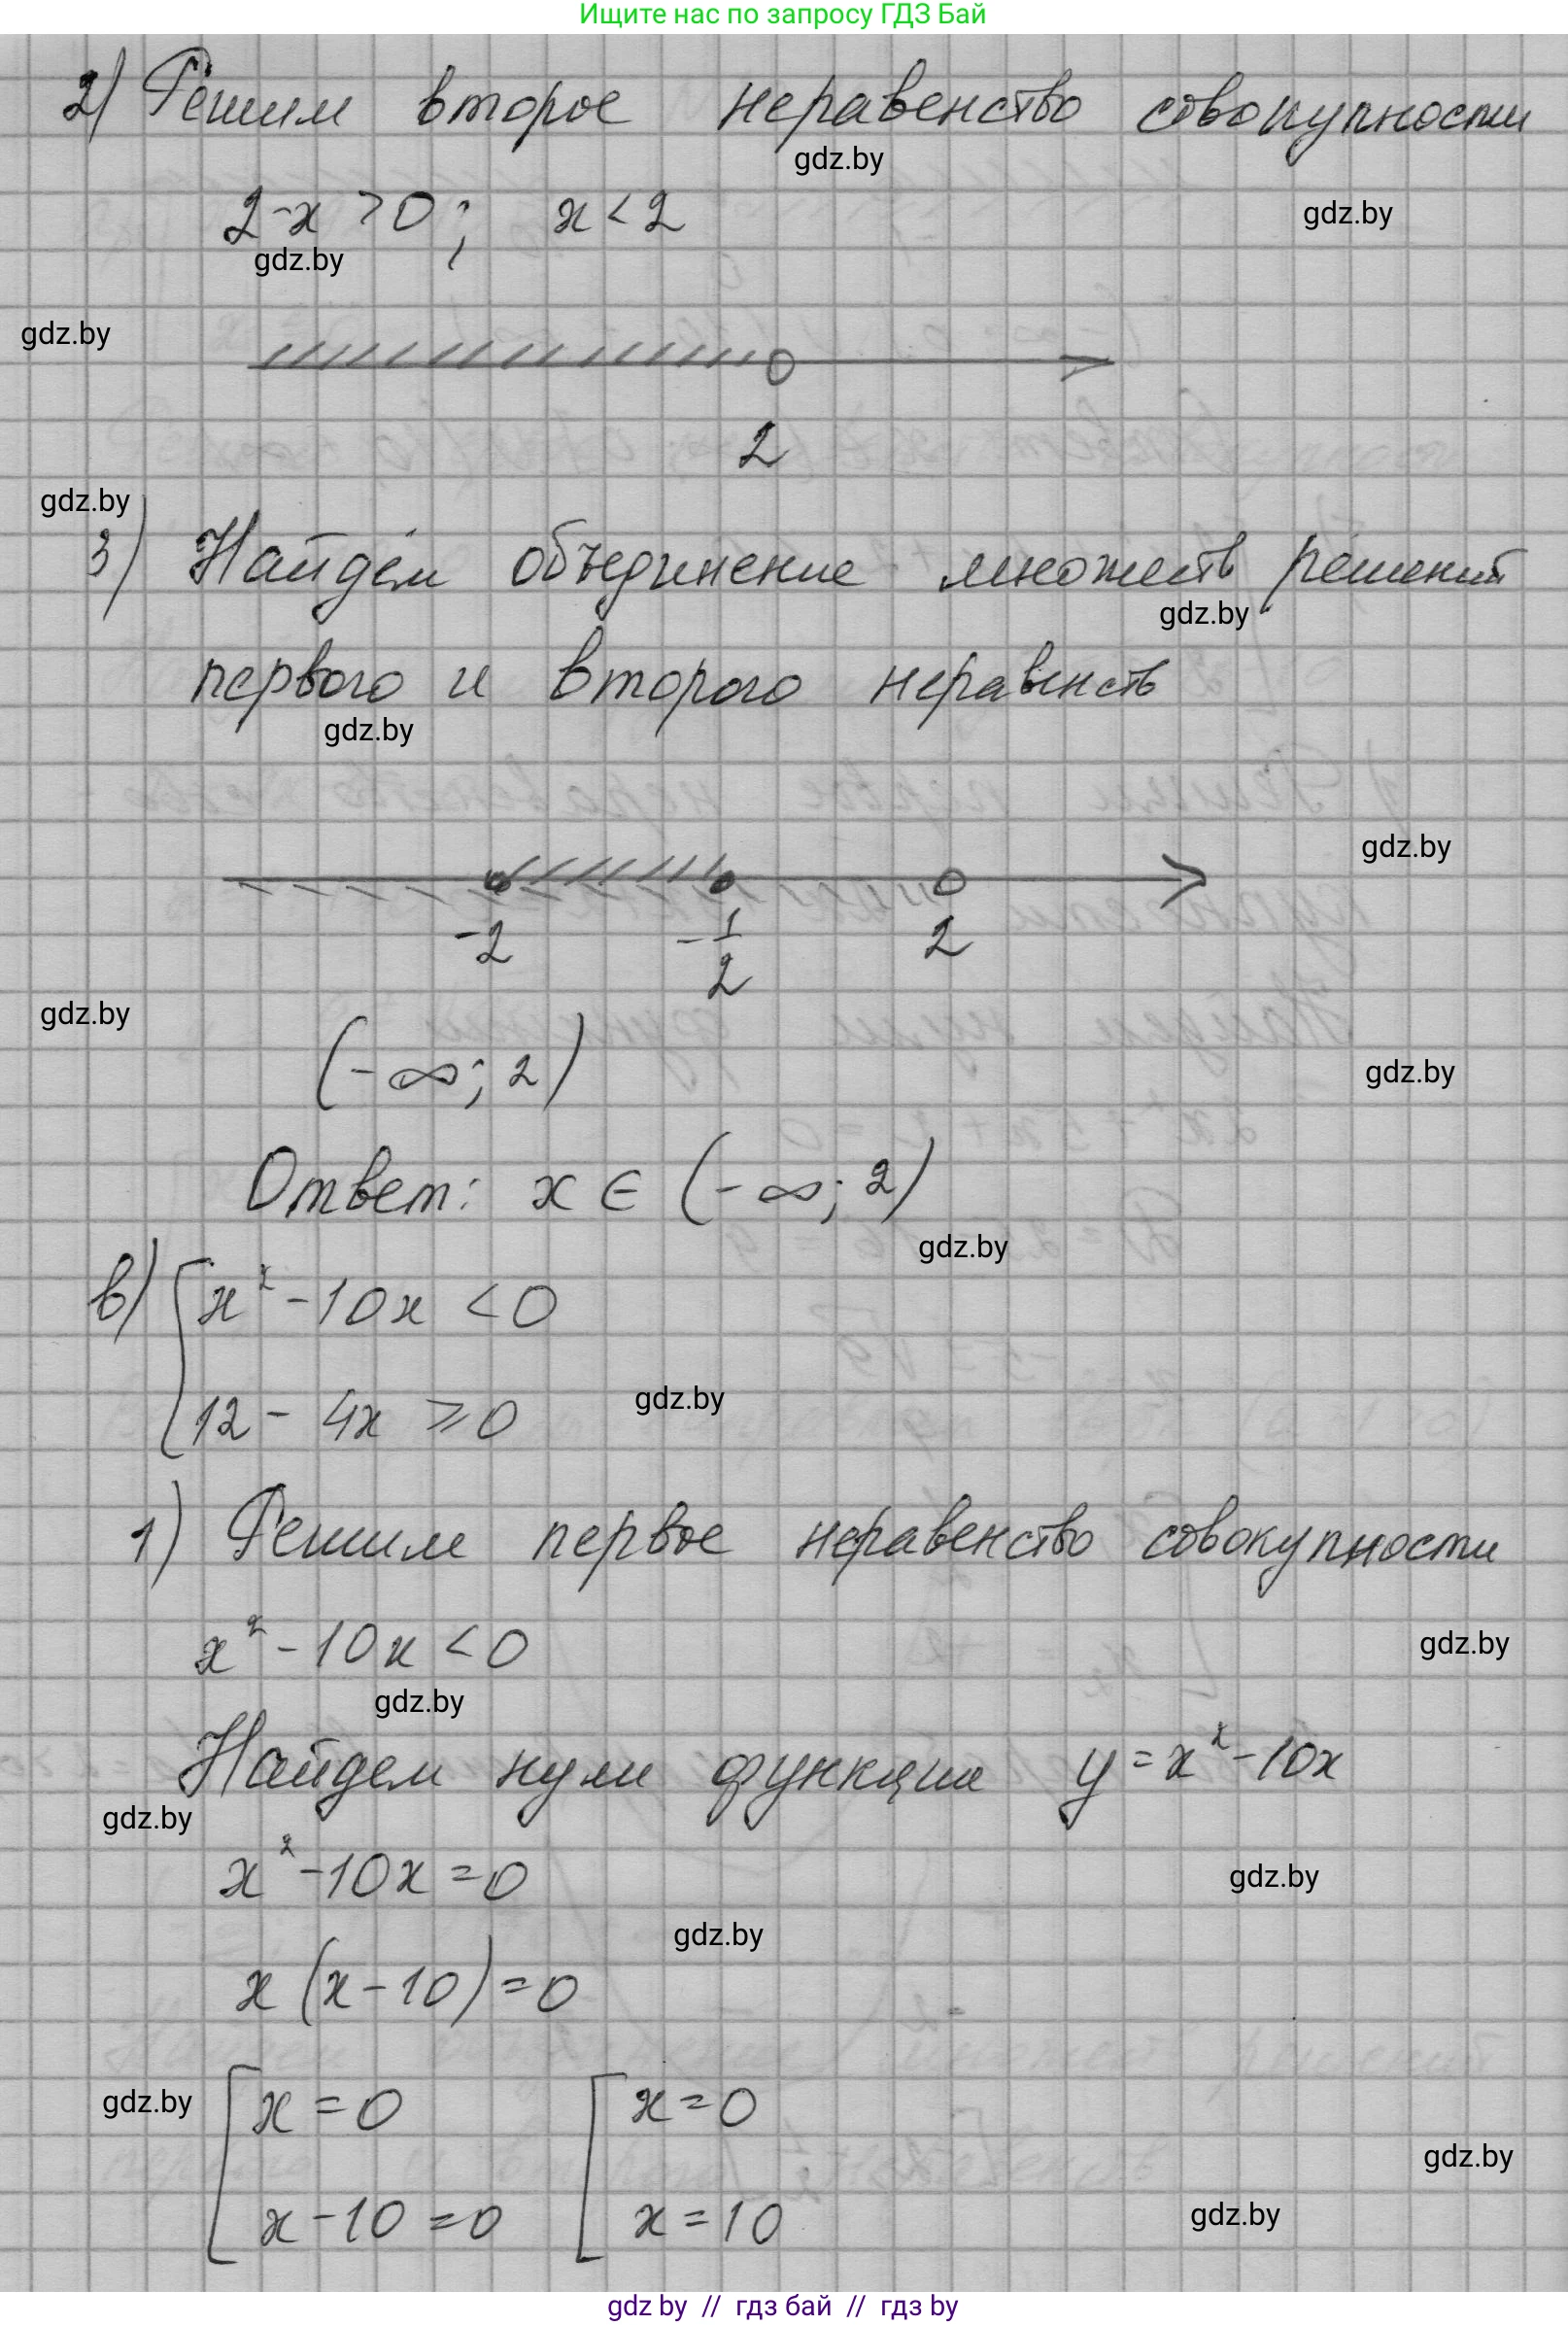 Ищите нас по запросу ГДЗ Бай
2) Решим второе неравенство совокупности
gdz.by
2-x >0; x<2
gdz.by
gdz.by
gdz.by
2
gdz.by
3) Найдём объединение множеств решений
gdz.by
первого и второго неравенств
gdz.by
gdz.by
-2 -1/2 2
gdz.by
(-∞; 2)
gdz.by
Ответ: x ∈ (-∞; 2)
gdz.by
в) [ x² -10x <0
12 - 4x ⩾0
gdz.by
1) Решим первое неравенство совокупности
x² -10x <0
gdz.by
gdz.by
Найдем нули функции y = x² -10x
gdz.by
x² -10x =0
gdz.by
gdz.by
x (x-10) =0
gdz.by
[ x=0 [ x=0
gdz.by
x-10 =0 x=10
gdz.by
gdz by // гдз бай // гдз by